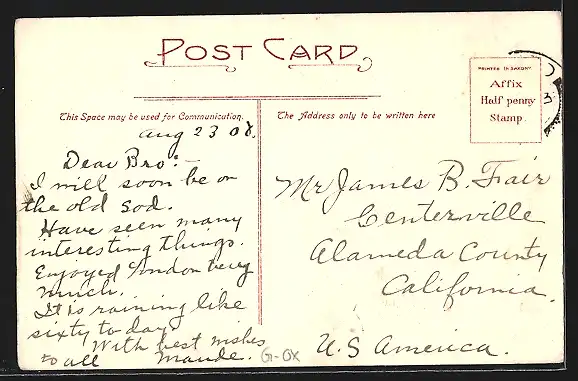 POST CARD
This Space may be used for Communication.
The Address only to be written here
PRINTED IN SAXONY
Affix
Half penny
Stamp.
3
Aug 23 08.
Dear Bro:-
I will soon be on
the old sod.
Have seen many
interesting things.
Enjoyed London very
much.
It is raining like
sixty to day
With best wishes
to all Maude.
G-OX
Mr James B. Fair
Centerville
Alameda County
California.
U.S America.